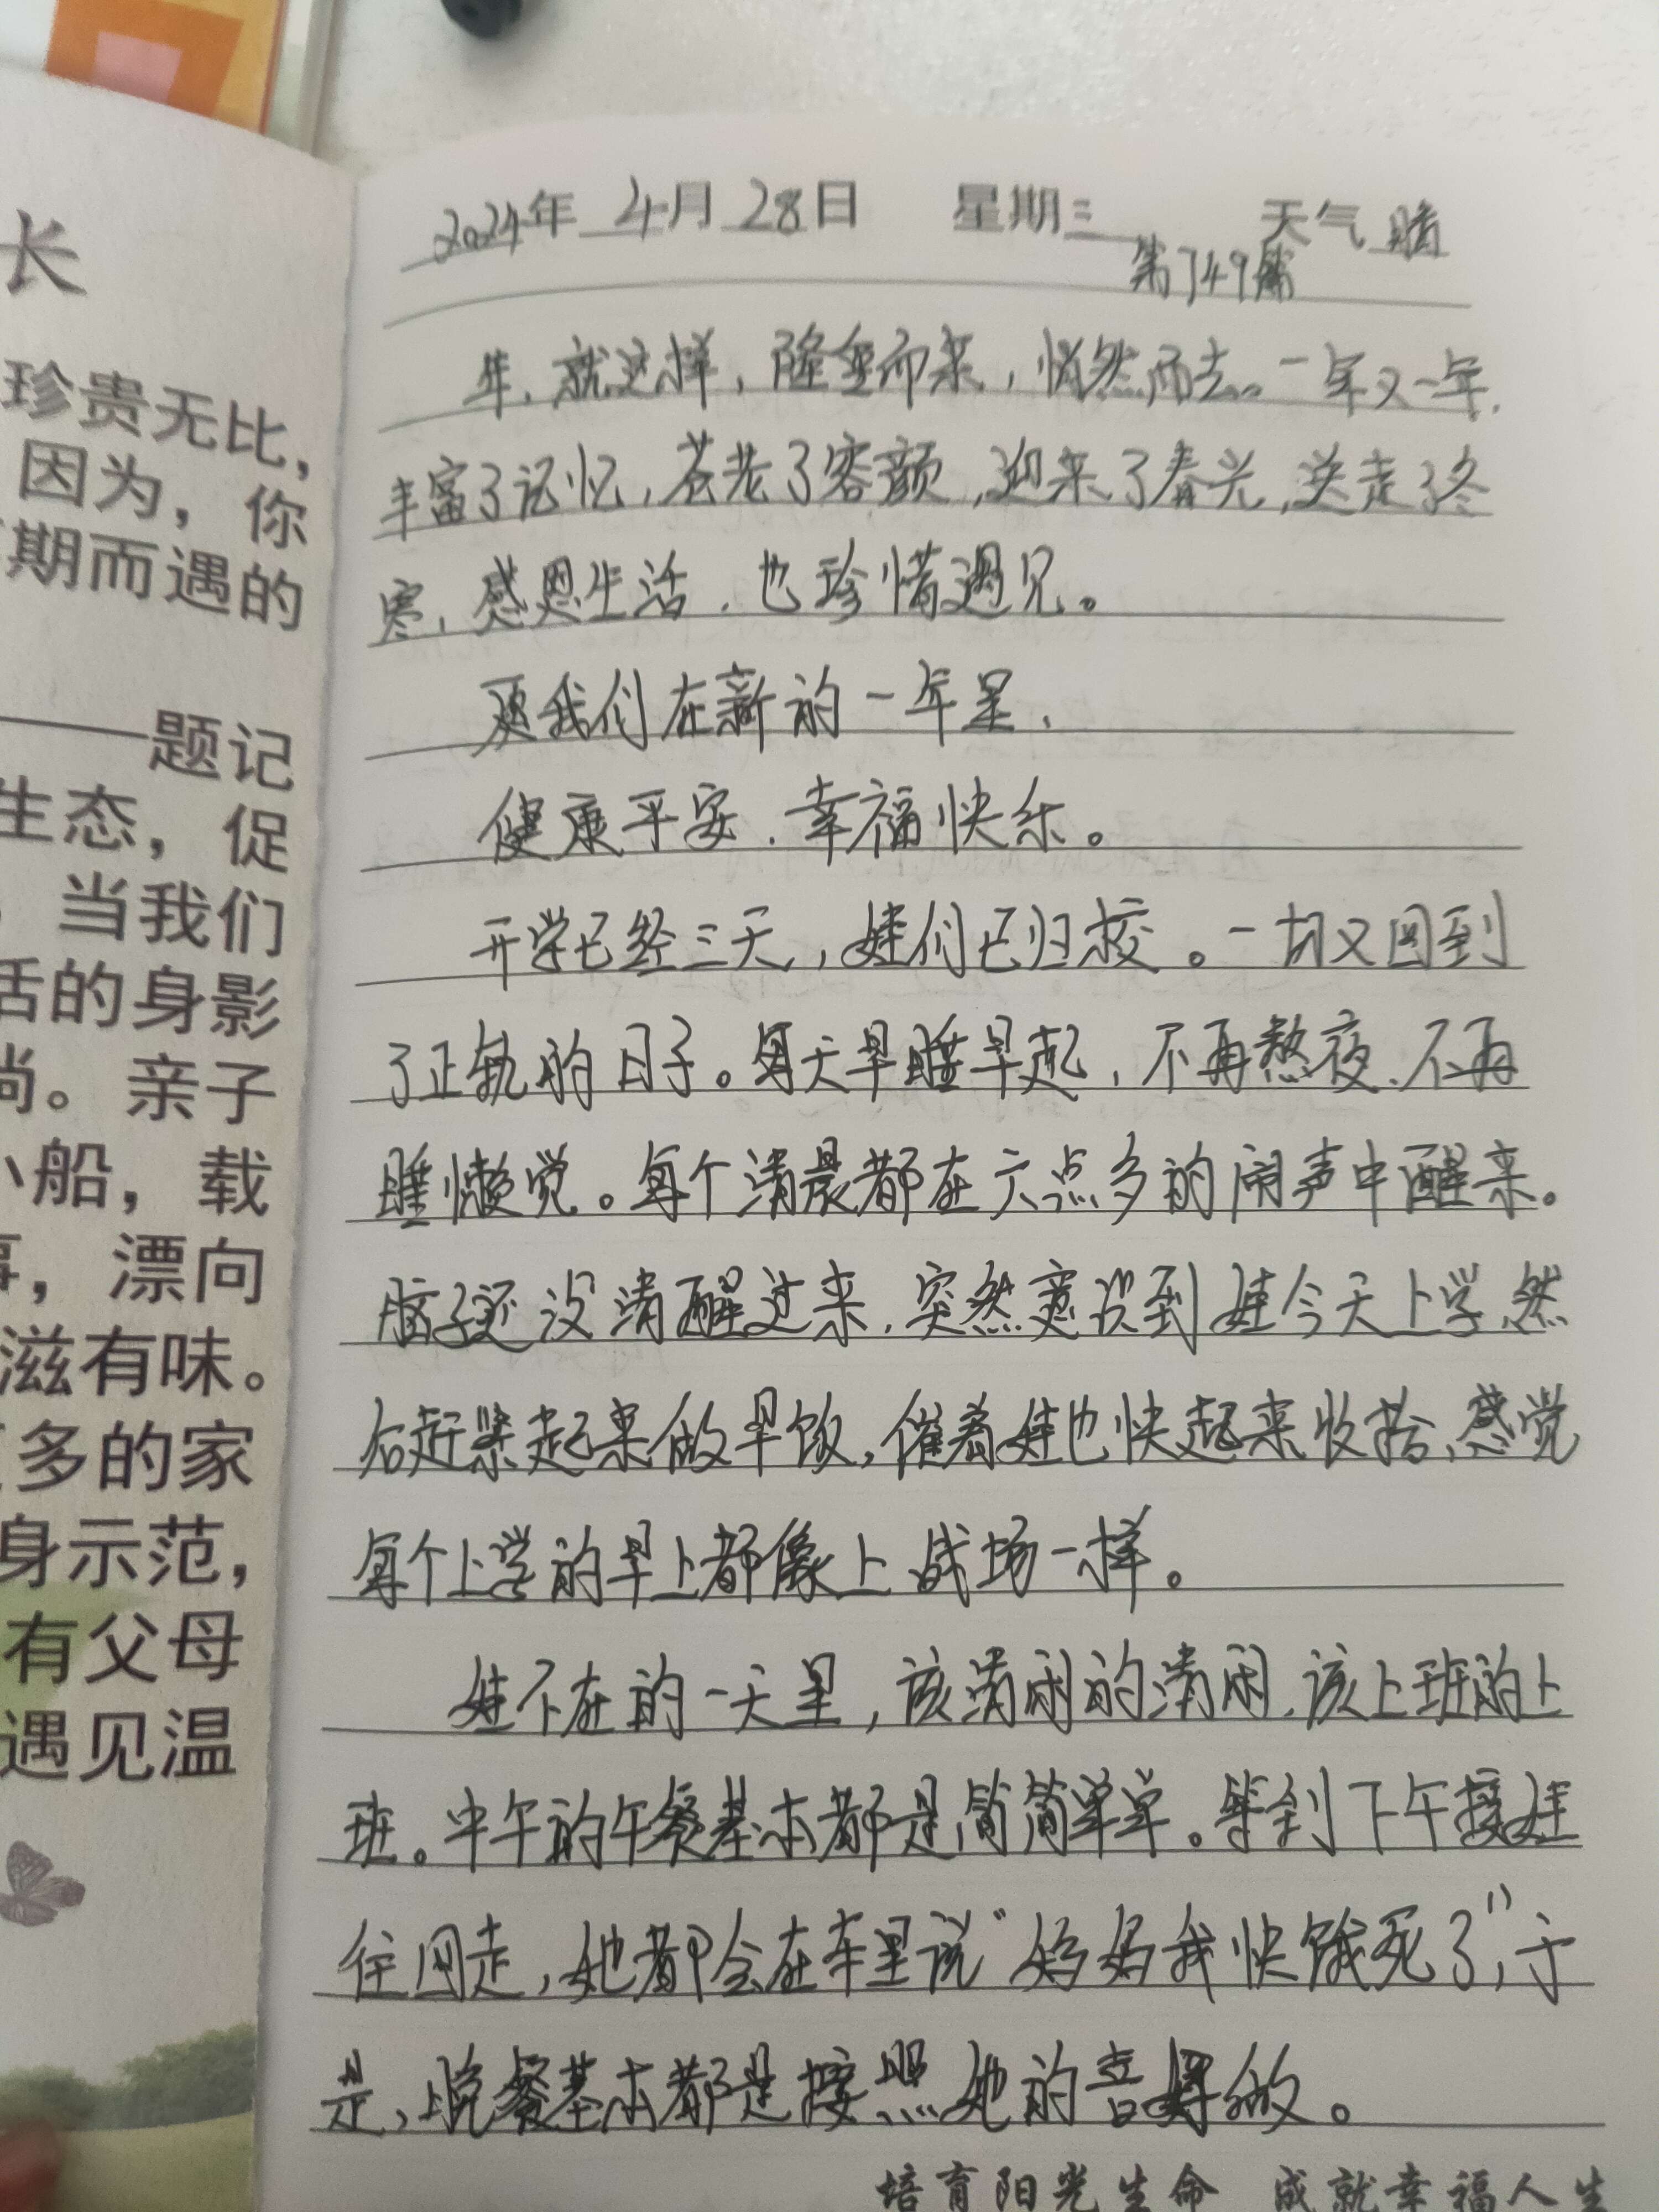 长
珍贵无比,
因为，你
期而遇的
——题记
生态，促
当我们
活的身影
尚。亲子
小船，载
事，漂向
滋有味。
多的家
身示范，
有父母
遇见温
2024年 4月 28日 星期三 天气 晴
第749篇
年，就这样，隆重而来，悄然而去。一年又一年，
丰富了记忆，苍老了容颜，迎来了春光，送走了冬
寒，感恩生活，也珍惜遇见。
愿我们在新的一年里，
健康平安，幸福快乐。
开学已经三天，娃们已归校。一切又回到
了正轨的日子。每天早睡早起，不再熬夜、不再
睡懒觉。每个清晨都在六点多的闹声中醒来。
脑子还没清醒过来，突然意识到娃今天上学，然
后赶紧起来做早饭，催着娃也快起来收拾，感觉
每个上学的早上都像上战场一样。
娃不在的一天里，该清闲的清闲，该上班的上
班。中午的午餐基本都是简简单单。等到下午接娃
往回走，她都会在车里说“妈妈我快饿死了”，于
是，晚餐基本都是按照她的喜好做。
培育阳光生命 成就幸福人生